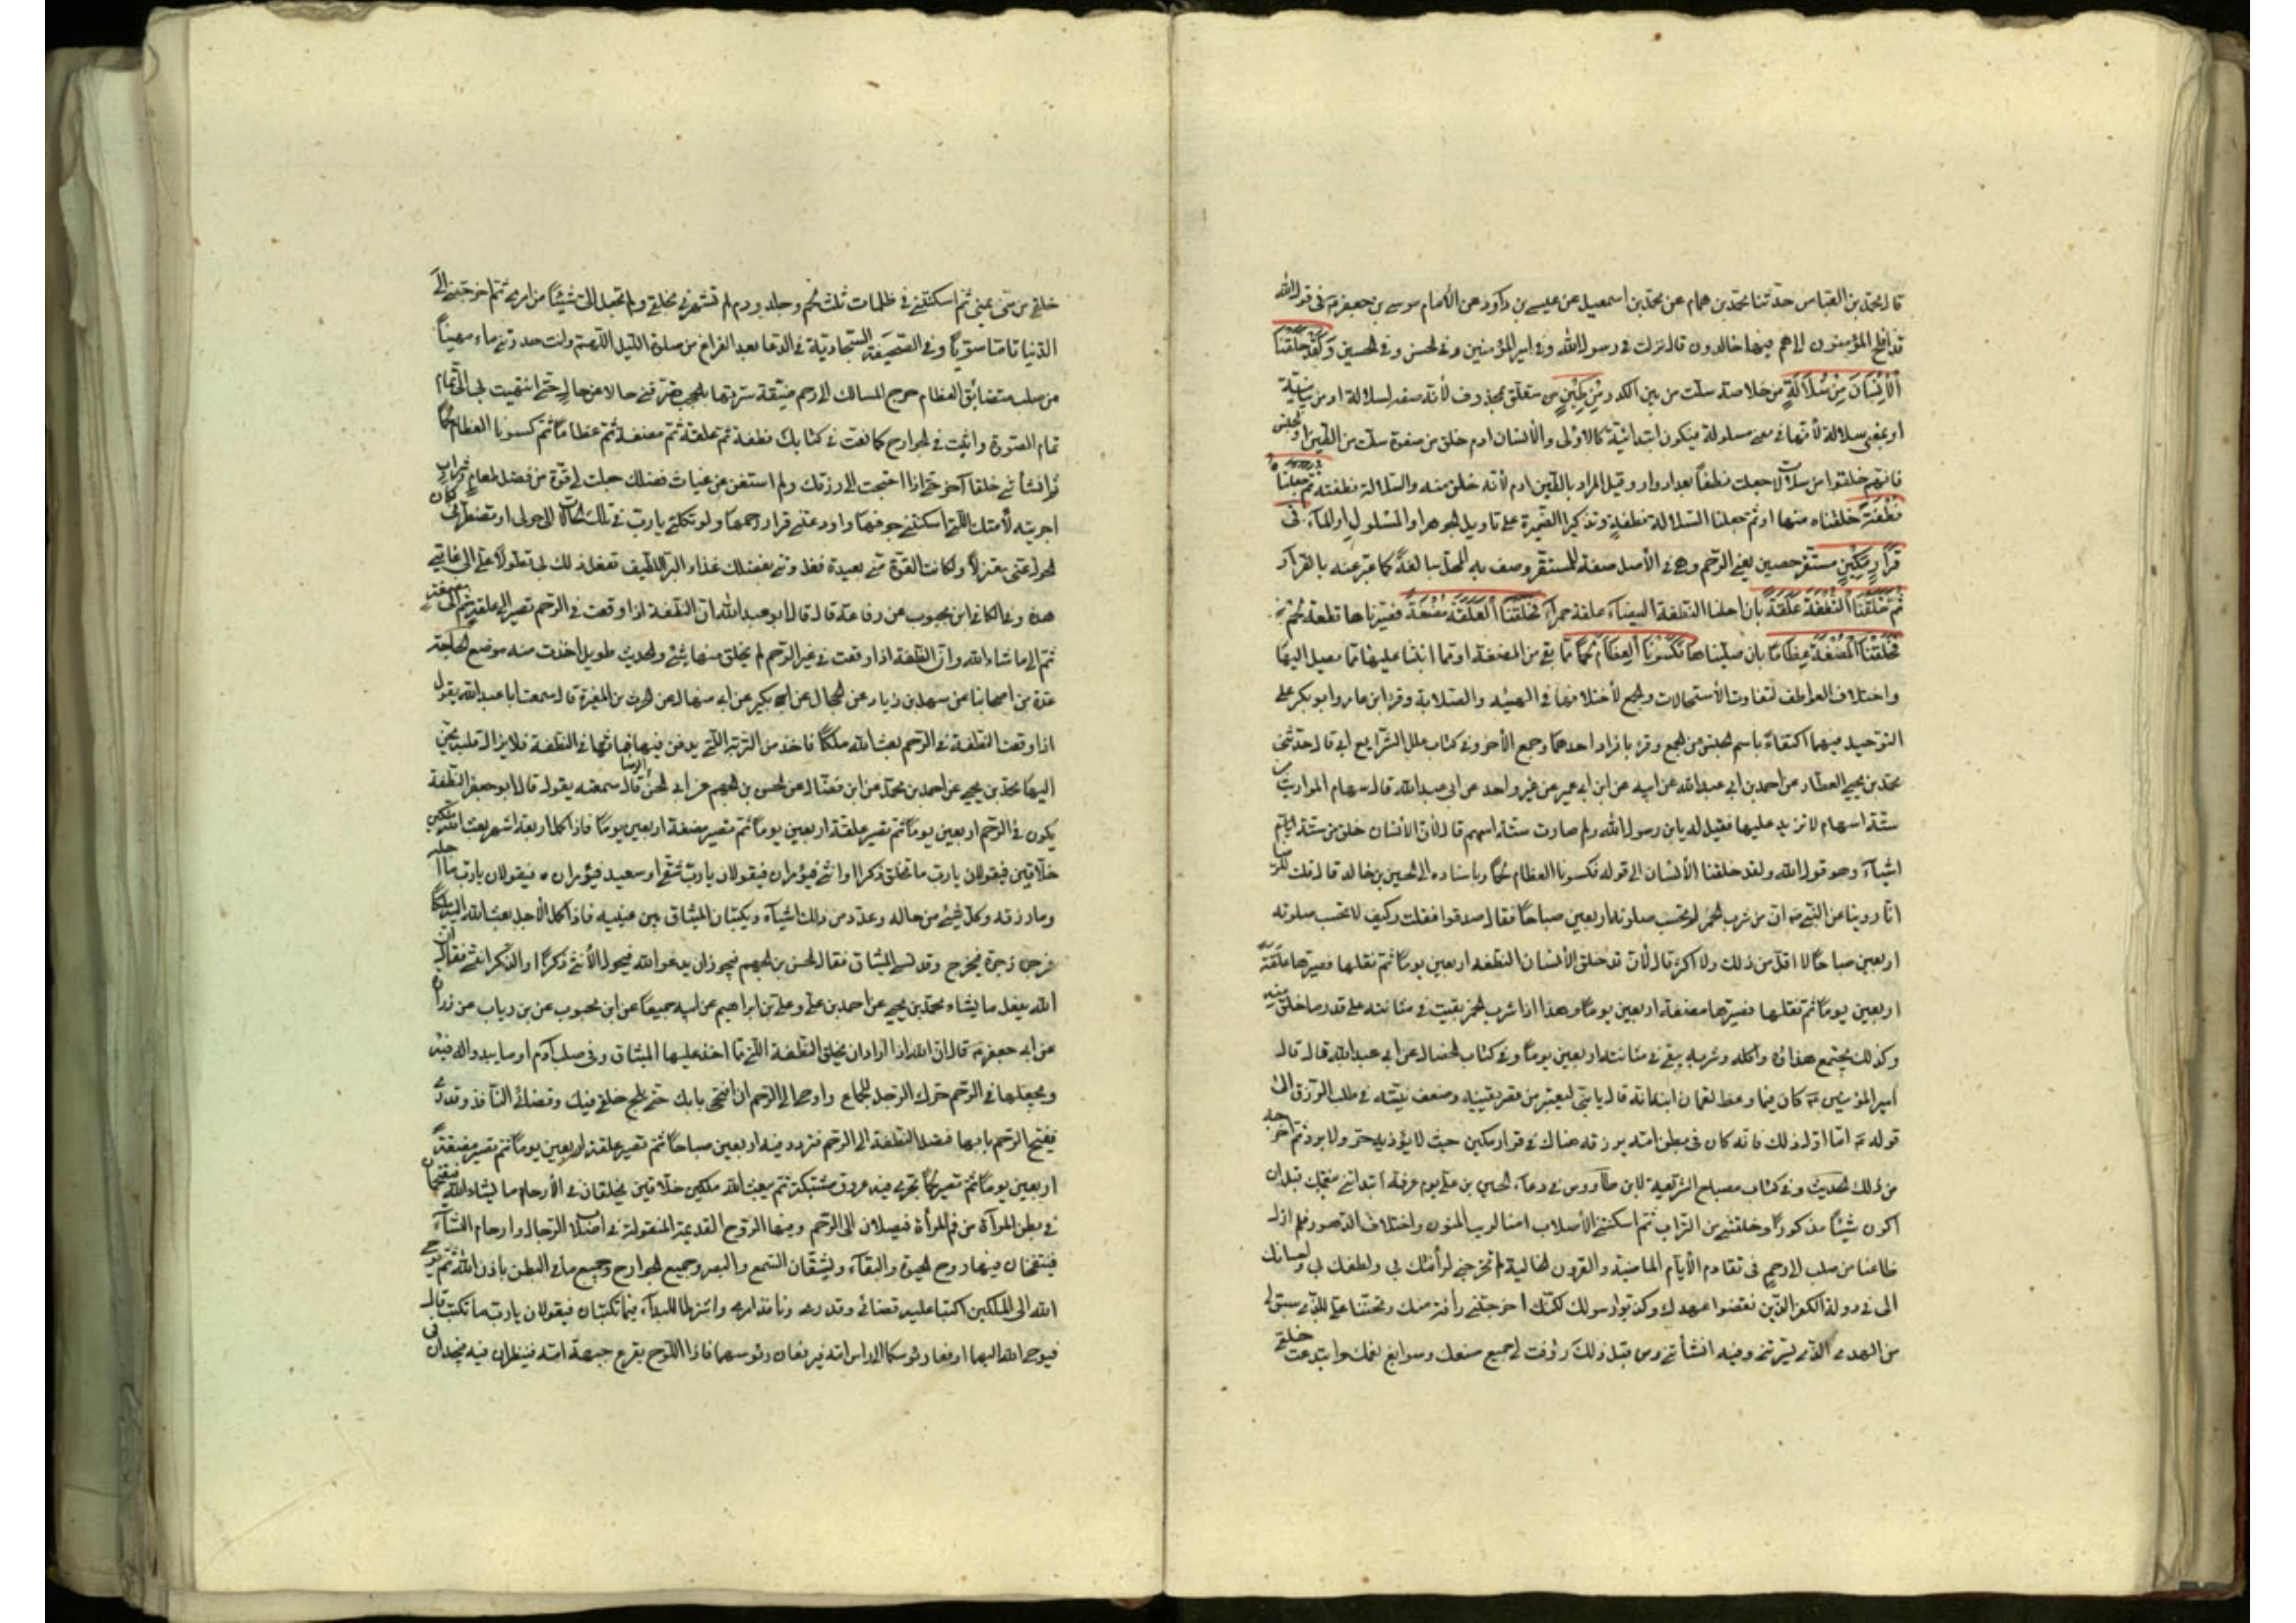 قال محمد بن العباس حدثنا محمد بن همام عن محمد بن اسمعيل عن عيسى بن داود عن الامام موسى بن جعفر ع في قول الله
قد افلح المؤمنون الى هم فيها خالدون قال نزلت في رسول الله وفي امير المؤمنين وفي الحسن وفي الحسين وَلَقَدْ خَلَقْنَا
الْأِنْسَانَ مِنْ سُلَالَةٍ من خلاصة سلت من بين الكدر مِنْ طِينٍ من متعلق بمحذوف لأنه صفة لسلالة او من بيانية
او بمعنى سلالة لأنها في معنى مسلولة فيكون ابتدائية كالاولى والأنسان ادم خلق من صفوة سلت من الطين او الجنس
فانهم خلقوا من سلالات جعلت نطفا بعد ادوار وقيل المراد بالطين ادم لأنه خلق منه والسلالة نطفته ثم جعلنا
نُطْفَةً خلقناه منها او ثم جعلنا السلالة نطفة وتذكير الضمير على تاويل الجوهر او المسلول او الماء فى
قَرَارٍ مَكِينٍ مستقر حصين يعني الرحم وهى في الأصل صفة للمستقر وصف به المحل مبالغة كما عبر عنه بالقرار
ثُمَّ خَلَقْنَا النُّطْفَةَ عَلَقَةً بان احلنا النطفة البيضاء علقة حمراء فَخَلَقْنَا الْعَلَقَةَ مُضْغَةً فصيرناها قطعة لحم
فَخَلَقْنَا الْمُضْغَةَ عِظَامًا بان صلبناها فَكَسَوْنَا الْعِظَامَ لَحْمًا مما بقي من المضغة او مما انبتنا عليها مما يصل اليها
واختلاف العواطف لتفاوت الأستحالات والجمع لأختلافها في الهيئة والصلابة وقرأ ابن عامر وابو بكر على
التوحيد فيهما اكتفاء باسم الجنس عن الجمع وقرء بافراد احدهما وجمع الأخر وفي كتاب علل الشرايع ابي قال حدثنى
محمد بن يحيى العطار عن احمد بن ابي عبد الله عن ابيه عن ابن ابي عمير عن غير واحد عن ابى عبد الله قال سهام المواريث
ستة اسهام لا تزيد عليها فقيل له يا بن رسول الله ولم صارت ستة اسهم قال لأن الأنسان خلق من ستة
اشياء وهو قول الله ولقد خلقنا الأنسان الى قوله فكسونا العظام لحما وباسناده الى الحسين بن خالد قال قلت للرضا
انا روينا عن النبي ص ان من شرب الخمر لم تحسب صلوته اربعين صباحًا فقال صدقوا فقلت وكيف لا تحسب صلوته
اربعين صباحًا لا اقل من ذلك ولا اكثر قال لأن الله قدر خلق الأنسان النطفة اربعين يوما ثم نقلها فصيرها علقة
اربعين يوما ثم نقلها فصيرها مضغة اربعين يوما وهذا اذا شرب الخمر بقيت في مثانته على قدر ما خلق منه
وكذلك يجتمع غذاؤه واكله وشربه يبقى في مثانته اربعين يوما وفي كتاب الخصال عن ابي عبد الله قال قال
امير المؤمنين ع كان فيما وعظ لقمان ابنه انه قال يا بنى ليعتبر من قصر يقينه وضعف نيته في طلب الرزق الى
قوله ع اما اول ذلك فانه كان في بطن امه يرزقه هناك في قرار مكين حيث لا يؤذيه حر ولا برد ثم اخرجه
من ذلك الحديث وفي كتاب مصباح الشريعة لابن طاووس في دعاء الحسين بن على يوم عرفة ابتدأتني بنعمتك قبل ان
اكون شيئا مذكورا وخلقتني من التراب ثم اسكنتني الأصلاب امنا لريب المنون واختلاف الدهور فلم ازل
ظاعنا من صلب الى رحم فى تقادم الأيام الماضية والقرون الخالية لم تخرجني لرأفتك بي ولطفك بي واحسانك
الى في دولة ائمة الكفر الذين نقضوا عهدك وكذبوا رسلك لكنك اخرجتني رأفة منك وتحننا علي للذي سبق لي
من الهدى الذي يسرتني وفيه انشأتني ومن قبل ذلك رؤفت بي بجميع صنعك وسوابغ نعمك وابتدعت خلقي
خلقي من مني يمنى ثم اسكنتني في ظلمات ثلث لحم وجلد ودم لم تشهرني بخلقي ولم تجعل الى شيئا من امري ثم اخرجتني الى
الدنيا تاما سويا وفي الصحيفة السجادية في الدعا بعد الفراغ من صلوة الليل اللهم وانت حدرتني ماء مهينا
من صلب متضائق العظام حرج المسالك الى رحم ضيقة سترتها بالحجب تصرفني حالا عن حال حتى انتهيت بي الى تمام
تمام الصورة واثبت في الجوارح كما نعت في كتابك نطفة ثم علقة ثم مضغة ثم عظاما ثم كسوت العظام لحما
ثم انشأتني خلقا آخر حتى اذا احتجت الى رزقك ولم استغن عن غياث فضلك جعلت لي قوة من فضل طعام وشراب
اجريته لأمتك التي اسكنتني جوفها واودعتني قرار رحمها ولو تكلني يا رب في تلك الحالات الى حولي او تضطرني
لكان الحول عني معتزلا ولكانت القوة مني بعيدة فغذوتني بفضلك غذاء البر اللطيف تفعل ذلك بي تطولا علي الى غايتي
هذه وفي الكافي ابن محبوب عن رفاعة قال قال ابو عبد الله ان النطفة اذا وقعت في الرحم تصير الى علقة ثم الى مضغة
ثم الى ما شاء الله وان النطفة اذا وقعت في غير الرحم لم يخلق منها شئ والحديث طويل اخذت منه موضع الحاجة
عدة من اصحابنا عن سهل بن زياد عن الحجال عن ابن بكير عن ابي منهال عن الحرث بن المغيرة قال سمعت ابا عبد الله يقول
اذا وقعت النطفة في الرحم بعث الله ملكا فاخذ من التربة التي يدفن فيها فماثها في النطفة فلا يزال قلبه يحن
اليها محمد بن يحيى عن احمد بن محمد عن ابن فضال عن الحسن بن الجهم عن ابي الحسن الرضا قال سمعته يقول قال ابو جعفر النطفة
يكون في الرحم اربعين يوما ثم تصير علقة اربعين يوما ثم تصير مضغة اربعين يوما فاذا كمل اربعة اشهر بعث الله ملكين
خلاقين فيقولان يا رب ما تخلق ذكرا او انثى فيؤمران فيقولان يا رب شقي او سعيد فيؤمران فيقولان يا رب ما اجله
وما رزقه وكل شيئ من حاله وعدد من ذلك اشياء ويكتبان الميثاق بين عينيه فاذا كمل الأجل بعث الله اليه ملكا
فزجره زجرة فيخرج وقد نسي الميثاق فقال الحسن بن الجهم فيجوز ان يدعو الله فيحول الأنثى ذكرا او الذكر انثى فقال ان
الله يفعل ما يشاء محمد بن يحيى عن احمد بن محمد وعلي بن ابراهيم عن ابيه جميعا عن ابن محبوب عن بن رياب عن زرارة
عن ابي جعفر ع قال ان الله اذا اراد ان يخلق النطفة التي مما اخذ عليها الميثاق وفي صلب آدم او ما يبدو له فيه
ويجعلها في الرحم حرك الرجل للجماع واوحى الى الرحم ان افتحي بابك حتى يلج خلقي فيك وقضائي النافذ وقدري
فيفتح الرحم بابها فتصل النطفة الى الرحم فتردد فيه اربعين صباحا ثم تصير علقة اربعين يوما ثم تصير مضغة
اربعين يوما ثم تصير لحما تجري فيه عروق مشتبكة ثم يبعث الله ملكين خلاقين يخلقان في الأرحام ما يشاء الله فيقتحمان
في بطن المرأة من فم المرأة فيصلان الى الرحم وفيها الروح القديمة المنقولة في اصلاب الرجال وارحام النساء
فينفخان فيها روح الحيوة والبقاء ويشقان السمع والبصر وجميع الجوارح وجميع ما في البطن باذن الله ثم يوحي
الله الى الملكين اكتبا عليه قضائي وقدري ونافذ امري واشترطا لي البداء فيما تكتبان فيقولان يا رب ما نكتب قال
فيوحي الله اليهما ارفعا رؤسكما الى راس امه فيرفعان رؤسهما فاذا اللوح يقرع جبهة امه فينظران فيه فيجدان فى